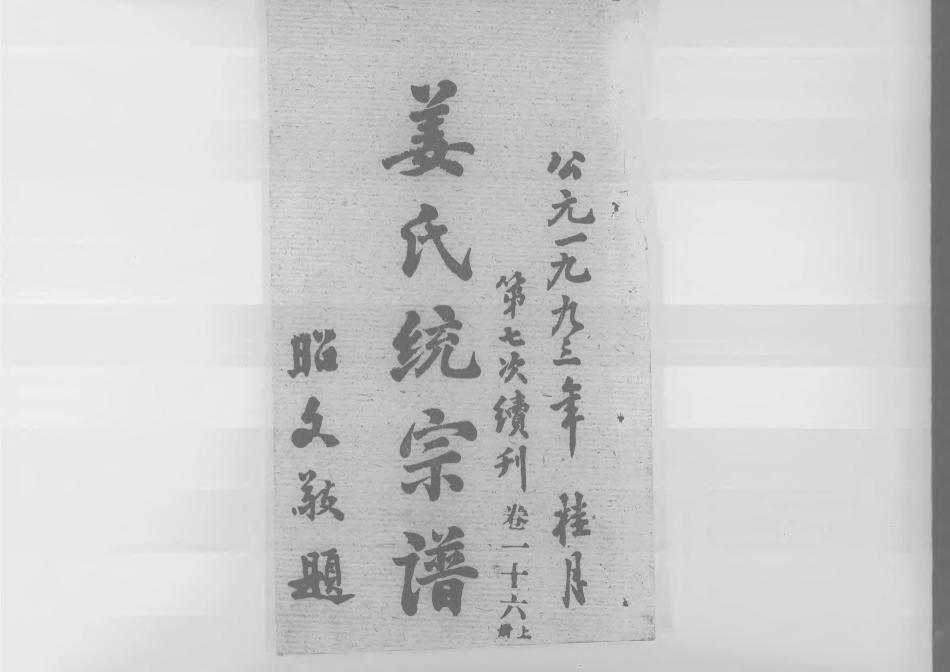 公元一九九三年 桂月
第七次續刊 卷一十六 上册
姜氏统宗谱
昭文敬題